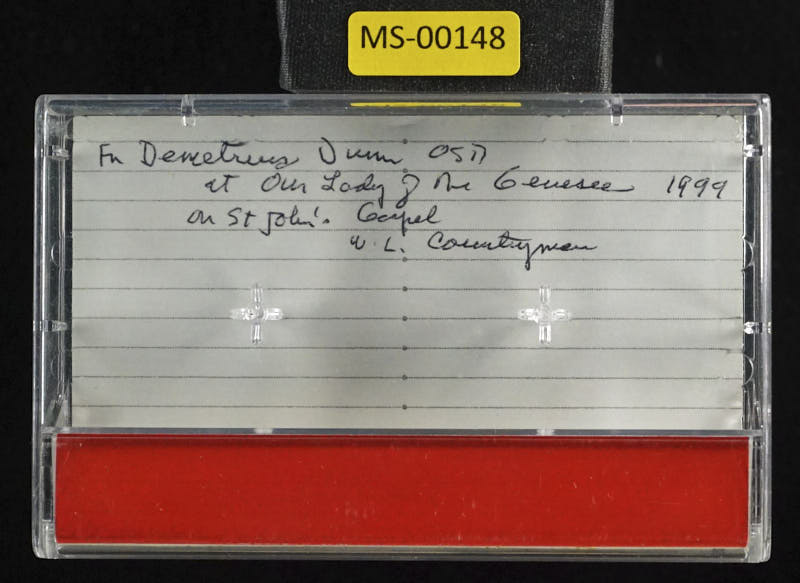 MS-00148
Fr Demetrius Dunn OSB
at Our Lady of the Genesee 1999
on St John's Gospel
W. L. Countryman